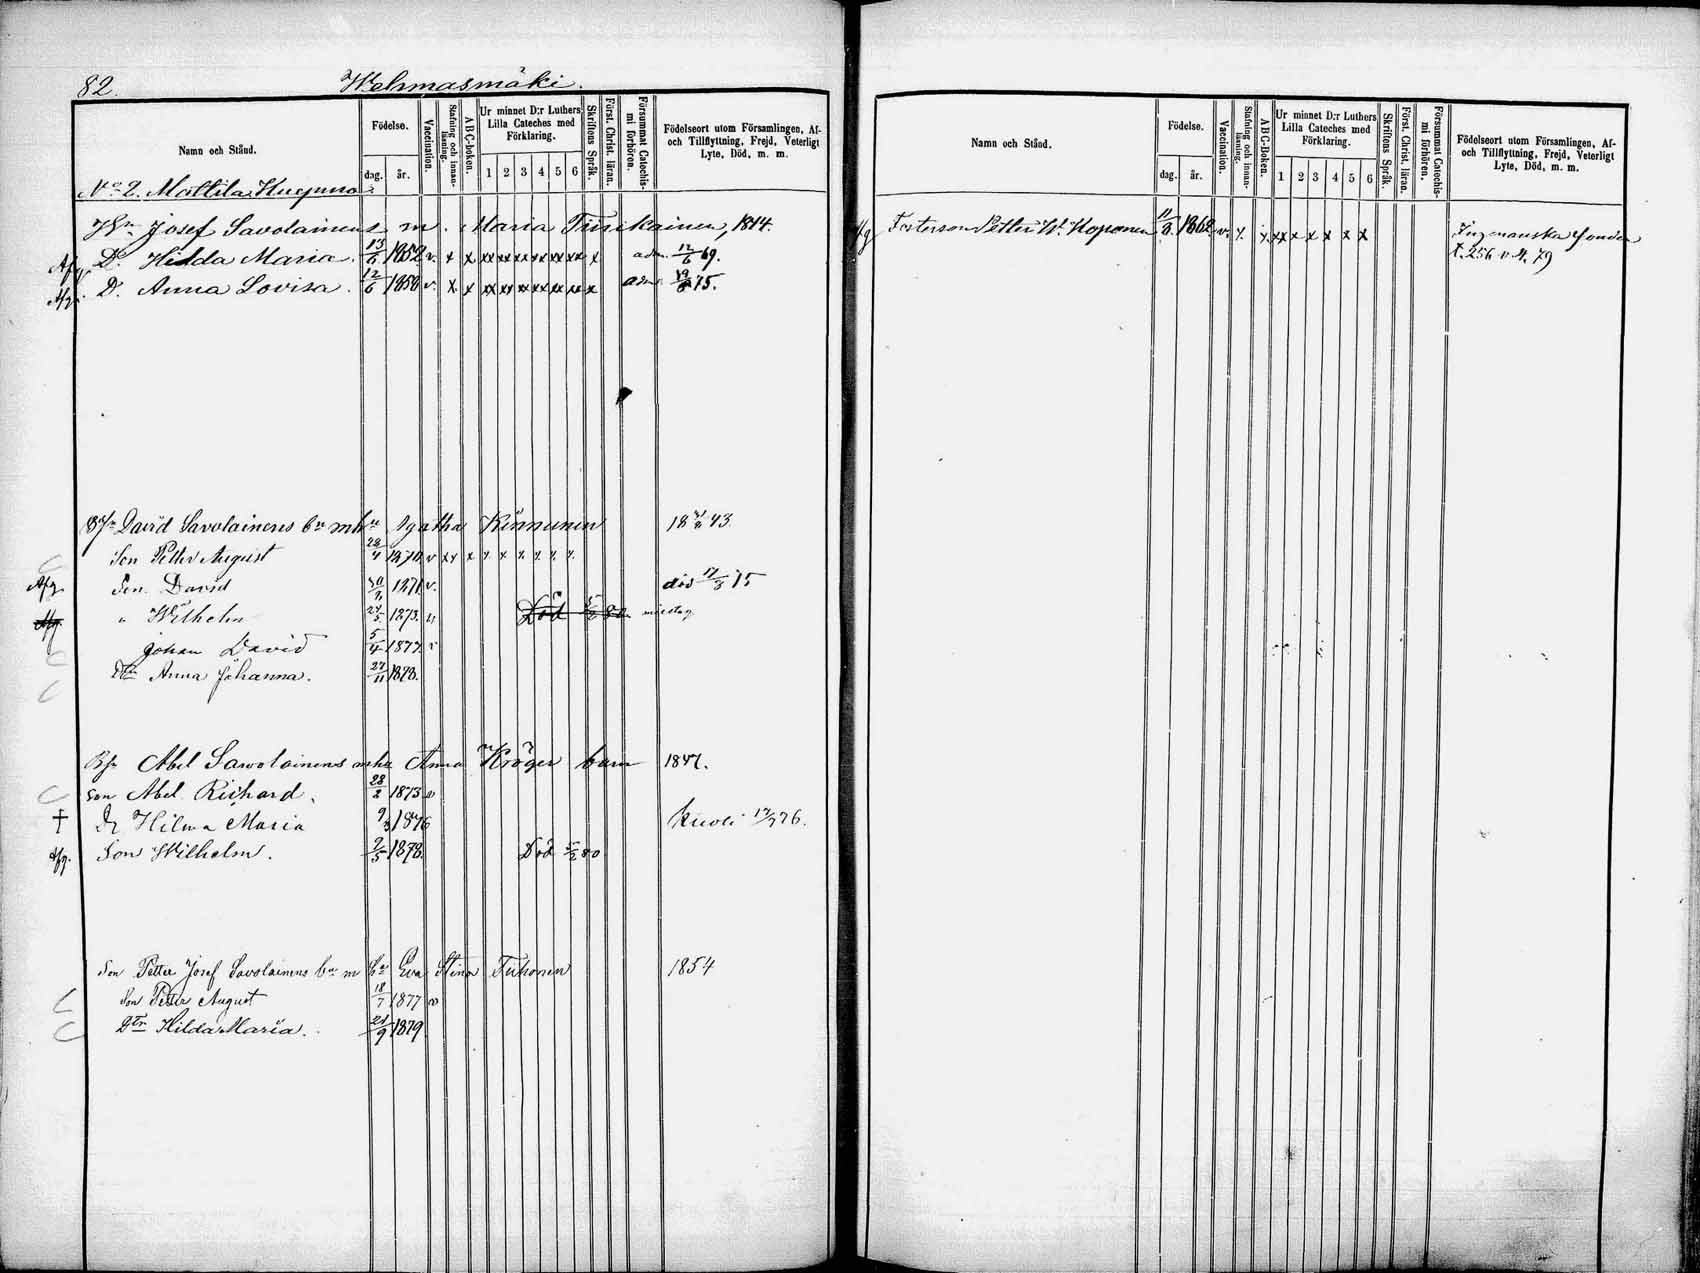 82. Wehmasmäki.
Namn och Stånd.
Födelse.
dag. år.
Vaccination.
Stafning och innanläsning.
ABC-boken.
Ur minnet D:r Luthers Lilla Cateches med Förklaring.
1 2 3 4 5 6
Skriftens Språk.
Först. Christ. läran.
Försummat Catechismi förhören.
Födelseort utom Församlingen, Af- och Tillflyttning, Frejd, Veterligt Lyte, Död, m. m.
No 2. Mattila
Josef Savolainens m. Maria Tiirikainen, 1814.
D. Hilda Maria. 13/6 1852 v. x x xx xx xx xx xx xx x adm. 12/6 69.
Afg. D. Anna Lovisa. 12/6 1858 v. x x xx xx xx xx xx xx x adm. 75.
David Savolainens bn m hu Agatha Kinnunen 18 43
Son Petter August 28/4 1870 v xx x x x x x x x
Afg. Son David 1871 v. död 17/3 75
" Wilhelm 24/5 1873. v Död 5/2 80 misstag
Johan David 5/4 1877 v
Dtr Anna Johanna. 27/11 1878.
Abel Sawolainens m hu Anna Kröger barn 1847.
Son Abel Richard. 28/2 1873 v
† Dr Hilma Maria 9/3 1876 kuoli 17/7 76.
Afg. Son Wilhelm. 2/5 1878. Död 5/2 80
Son Petter Josef Savolainens bn m hu Eva Stina Tiihonen 1854
Son Petter August 18/7 1877 v
Dtr Hilda Maria. 21/9 1879.
Namn och Stånd.
Födelse.
dag. år.
Vaccination.
Stafning och innanläsning.
ABC-Boken.
Ur minnet D:r Luthers Lilla Cateches med Förklaring.
1 2 3 4 5 6
Skriftens Språk.
Först. Christ. läran.
Försummat Catechismi förhören.
Födelseort utom Församlingen, Af- och Tillflyttning, Frejd, Veterligt Lyte, Död, m. m.
Fosterson Petter W. Koponen 11/3 1862 v. x. x xx x x x x x
t. 256 v 4. 79